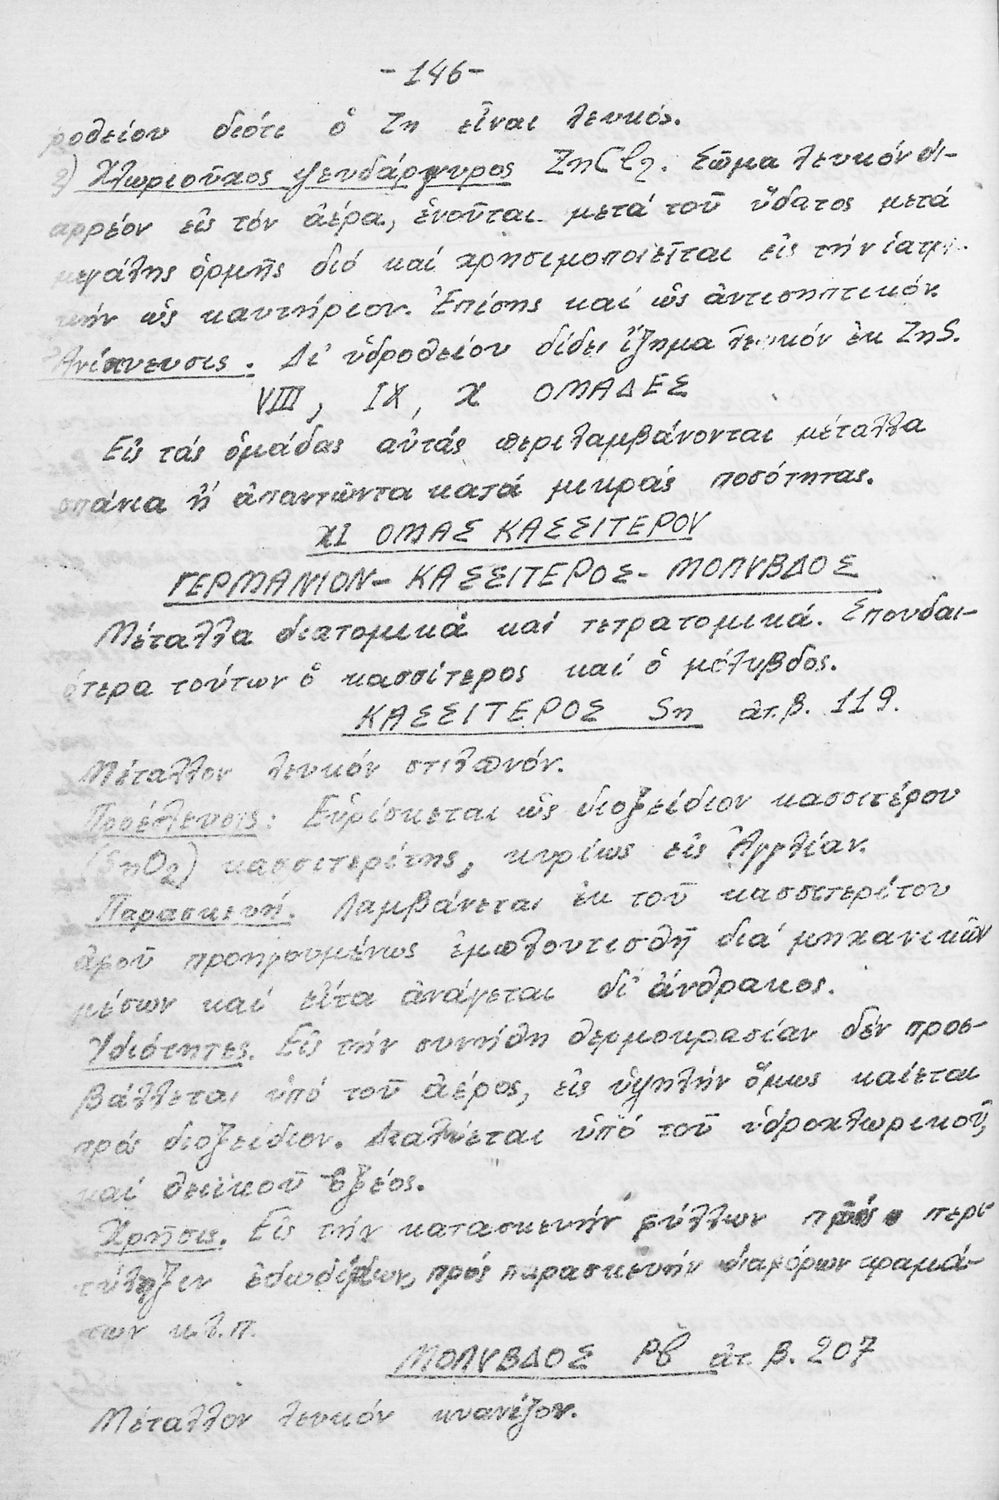 -146-
ροθείου διότι ὁ Zn εἶναι λευκός.
2) Χλωριοῦχος ψευδάργυρος ZnCl2. Σῶμα λευκόν δι-
αρρέον εἰς τόν ἀέρα, ἑνοῦται μετά τοῦ ὕδατος μετά
μεγάλης ὁρμῆς διό καί χρησιμοποιεῖται εἰς τήν ἰατρι-
κήν ὡς καυτήριον. Ἐπίσης καί ὡς ἀντισηπτικόν.
Ἀνίχνευσις. Δι' ὑδροθείου δίδει ἵζημα λευκόν ἐκ ZnS.
VIII, IX, X ΟΜΑΔΕΣ
Εἰς τάς ὁμάδας αὐτάς περιλαμβάνονται μέταλλα
σπάνια ἤ ἀπαντῶντα κατά μικράς ποσότητας.
XI ΟΜΑΣ ΚΑΣΣΙΤΕΡΟΥ
ΓΕΡΜΑΝΙΟΝ-ΚΑΣΣΙΤΕΡΟΣ-ΜΟΛΥΒΔΟΣ
Μέταλλα διατομικά καί τετρατομικά. Σπουδαι-
ότερα τούτων ὁ κασσίτερος καί ὁ μόλυβδος.
ΚΑΣΣΙΤΕΡΟΣ Sn ἀτ.β. 119.
Μέταλλον λευκόν στιλπνόν.
Προέλευσις: Εὑρίσκεται ὡς διοξείδιον κασσιτέρου
(SnO2) κασσιτερίτης, κυρίως εἰς Ἀγγλίαν.
Παρασκευή. Λαμβάνεται ἐκ τοῦ κασσιτερίτου
ἀφοῦ προηγουμένως ἐμπλουτισθῇ διά μηχανικῶν
μέσων καί εἶτα ἀνάγεται δι' ἄνθρακος.
Ἰδιότητες. Εἰς τήν συνήθη θερμοκρασίαν δέν προσ-
βάλλεται ὑπό τοῦ ἀέρος, εἰς ὑψηλήν ὅμως καίεται
πρός διοξείδιον. Διαλύεται ὑπό τοῦ ὑδροχλωρικοῦ,
καί θειϊκοῦ ὀξέος.
Χρῆσις. Εἰς τήν κατασκευήν φύλλων πρός περι
τύλιξιν ἐδωδίμων, πρός παρασκευήν διαφόρων κραμά-
των κ.λ.π.
ΜΟΛΥΒΔΟΣ Pb ἀτ. β. 207
Μέταλλον λευκόν κυανίζον.